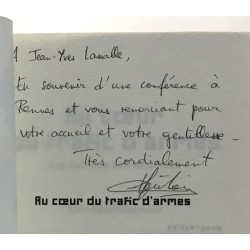 A Jean-Yves Lassalle,
En souvenir d'une conférence à
Rennes et vous remerciant pour
votre accueil et votre gentillesse -
Très cordialement
Au cœur du trafic d'armes